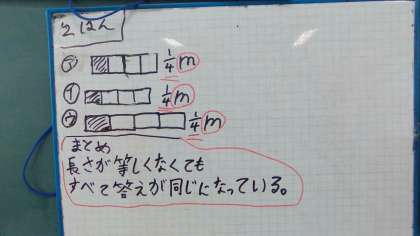 2はん
㋐ 1/4 m
㋑ 1/4 m
㋒ 1/4 m
まとめ
長さが等しくなくても
すべて答えが同じになっている。